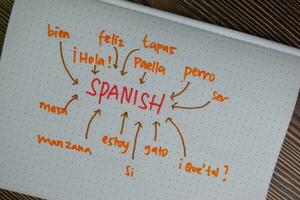 bien
feliz
tapas
¡Hola!
Paella
perro
SPANISH
ser
mesa
manzana
estoy
gato
si
¡Que'tal?